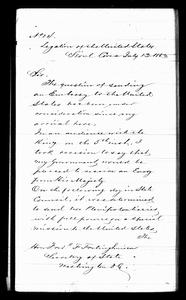 No 14.
Legation of the United States
Seoul Corea July 13, 1883
Sir
The question of sending
an Embassy to the United
States has been under
consideration since my
arrival here.
In an audience with the
King on the 5th inst, I
took occasion to say that
my Government would be
pleased to receive an Envoy
from His Majesty.
On the following day in State
Council, it was determined
to send two Plenipotentiaries
with full powers on a special
mission to the United States.
The
Hon. Fredk T. Frelinghuysen
Secretary of State
Washington D.C.